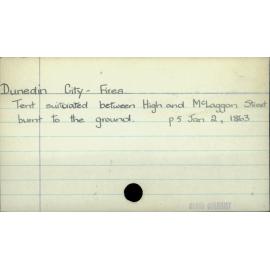 Dunedin City - Fires
Tent suituated between High and McLaggan Street
burnt to the ground. p 5 Jan 2, 1863